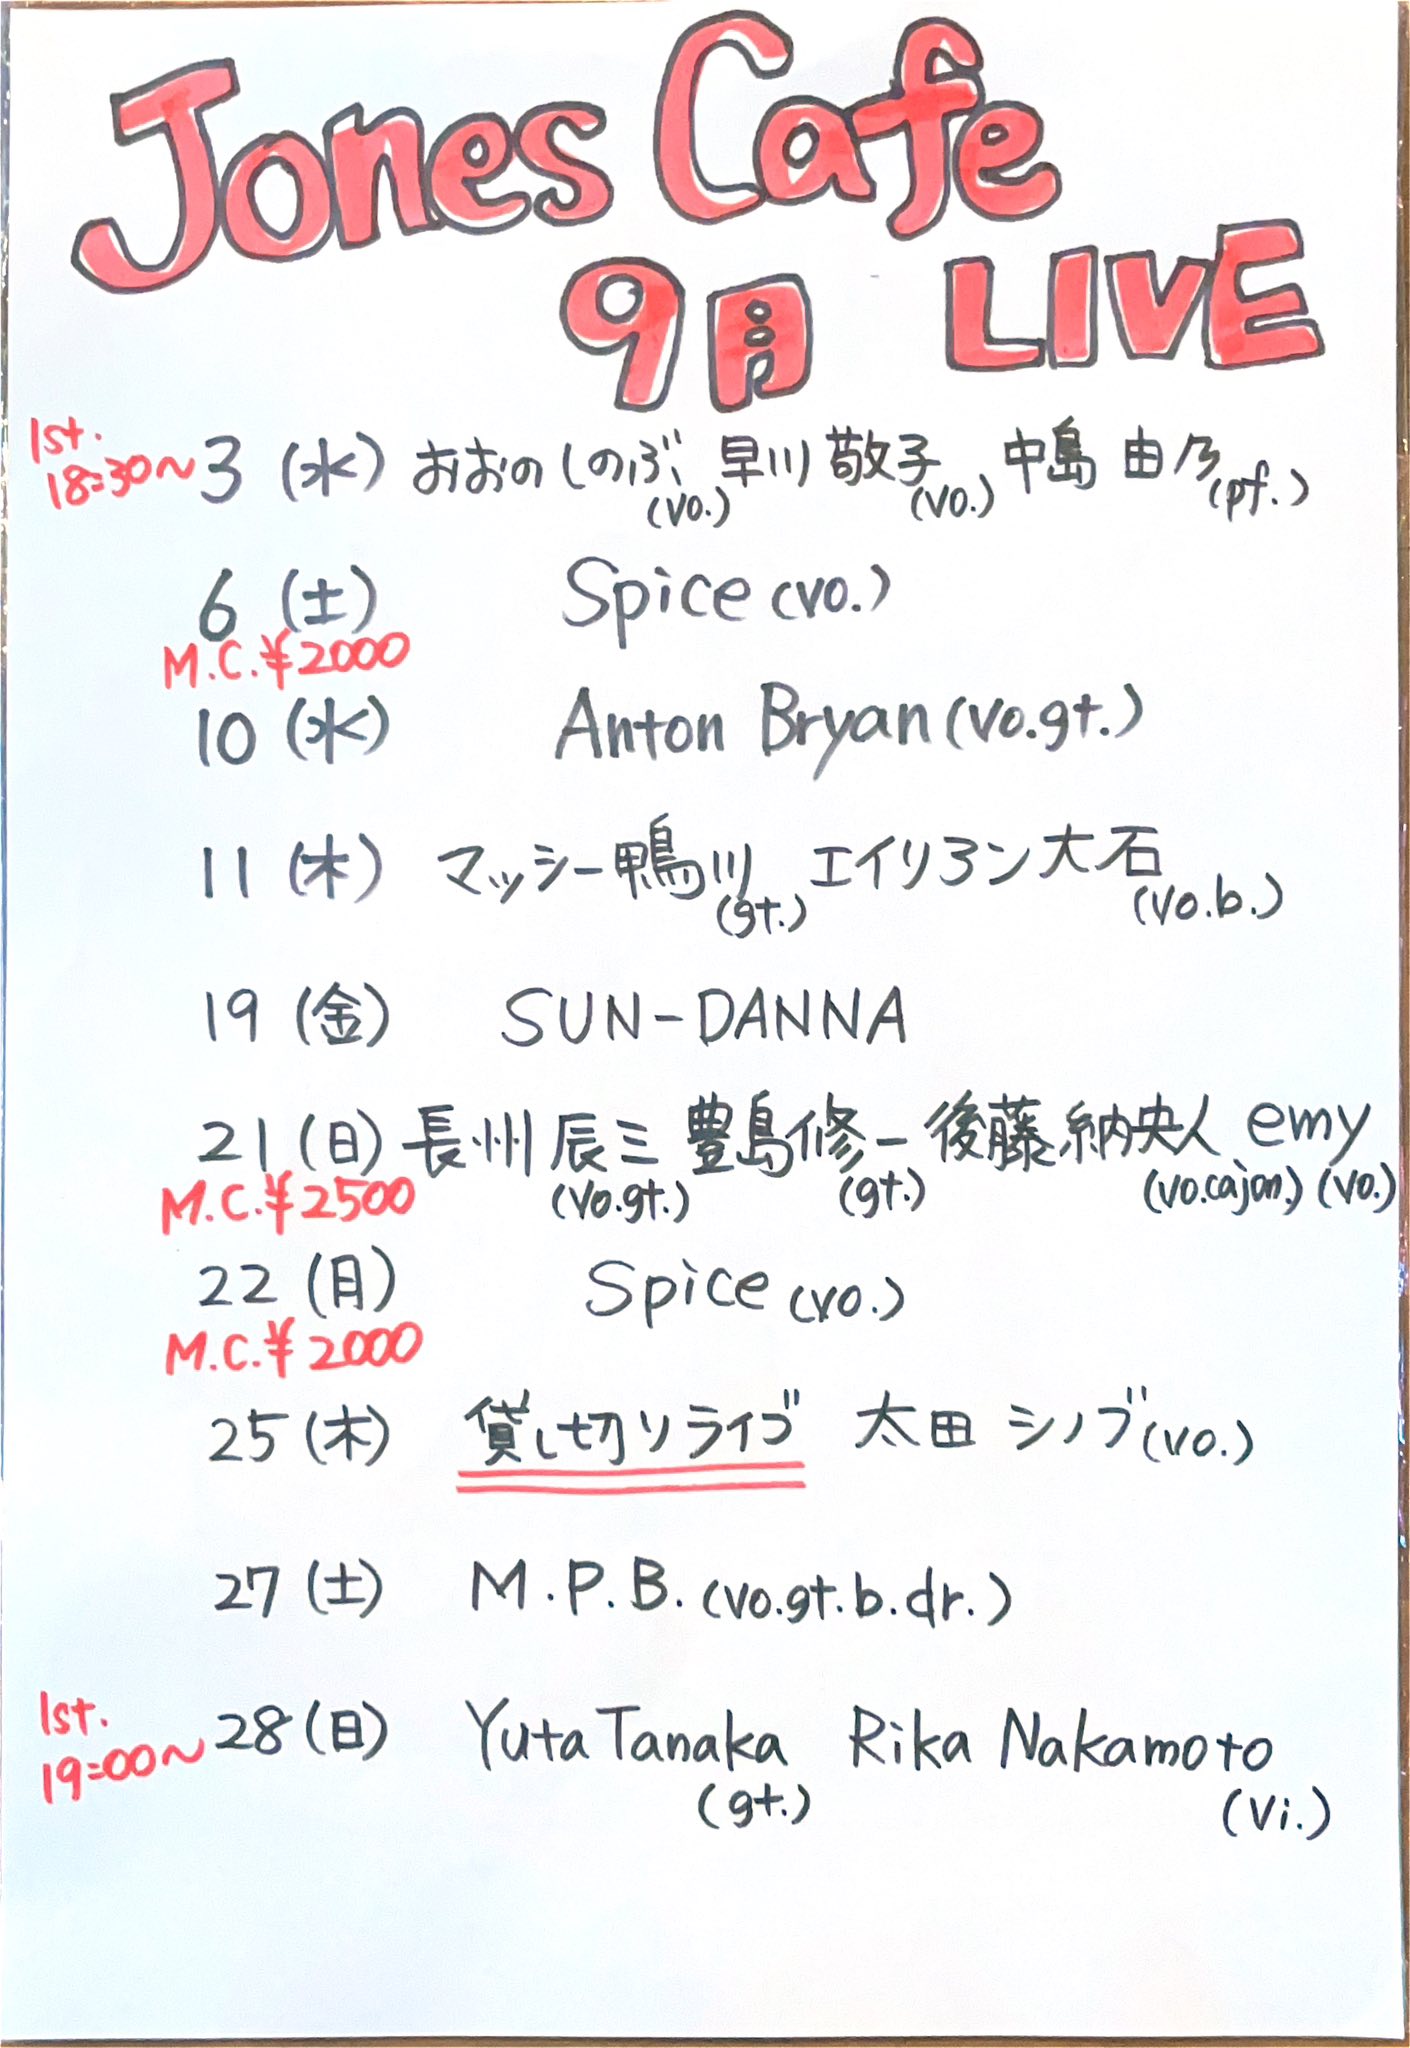 Jones Cafe
9月 LIVE
1st.
18:30〜 3 (水) おおのしのぶ(vo.) 早川 敬子(vo.) 中島 由乃(pf.)
6 (土) Spice (vo.)
M.C.¥2000
10 (水) Anton Bryan (vo.gt.)
11 (木) マッシー鴨川(gt.) エイリアン大石(vo.b.)
19 (金) SUN-DANNA
21 (日) 長州 辰三(vo.gt.) 豊島修一(gt.) 後藤 納央人(vo.cajon) emy(vo.)
M.C.¥2500
22 (月) Spice (vo.)
M.C.¥2000
25 (木) 貸し切りライブ 太田 シノブ(vo.)
27 (土) M.P.B. (vo.gt.b.dr.)
1st.
19:00〜 28 (日) Yuta Tanaka (gt.) Rika Nakamoto (vi.)